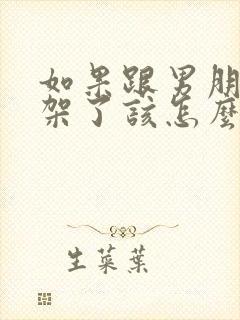 如果跟男朋
架了该怎麼
生菜葉